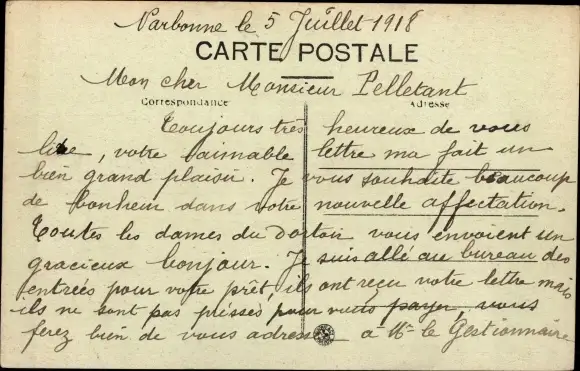 Narbonne le 5 Juillet 1918
CARTE POSTALE
Mon cher Monsieur Pelletant
Correspondance Adresse
Toujours très heureux de vous
lire, votre aimable lettre ma fait un
bien grand plaisir. Je vous souhaite beaucoup
de bonheur dans votre nouvelle affectation.
Toutes les dames du Dortoir vous envoient un
gracieux bonjour. Je suis allé au bureau des
entrées pour votre prêt, ils ont reçu votre lettre mais
ils ne sont pas pressés pour vous payer, vous
ferez bien de vous adresser à Mr le Gestionnaire